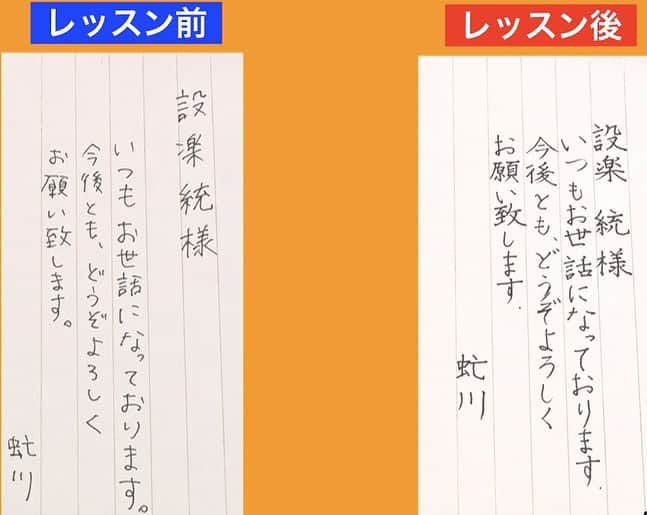 レッスン前
設楽統様
いつもお世話になっております。
今後とも、どうぞよろしく
お願い致します。
虻川
レッスン後
設楽 統様
いつもお世話になっております.
今後とも、どうぞよろしく
お願い致します.
虻川